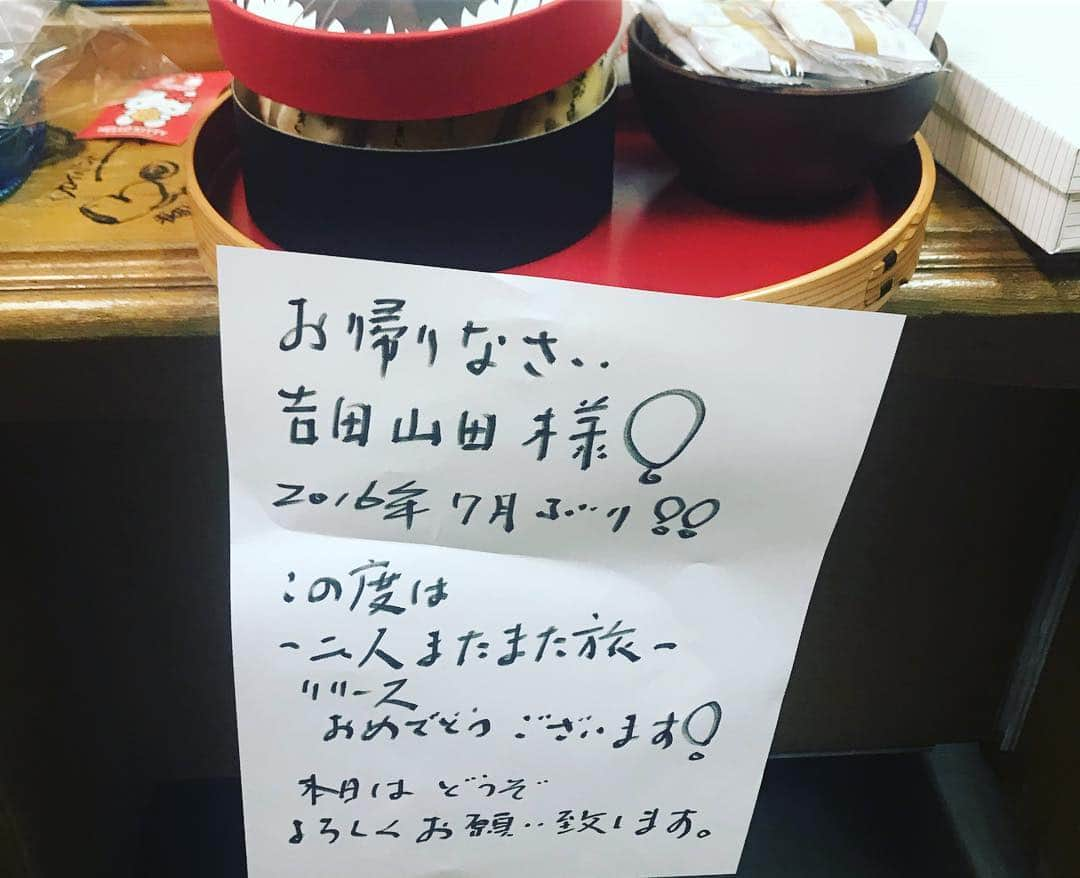 お帰りなさい
吉田山田様!
2016年7月ぶり!!
この度は
-二人またまた旅-
リリース
おめでとうございます!
本日はどうぞ
よろしくお願い致します。